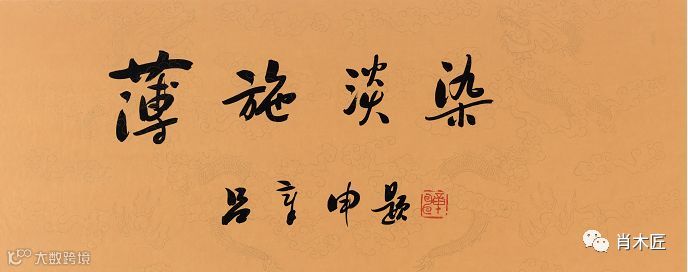 薄施淡染
吕章申题
大数跨境
肖木匠